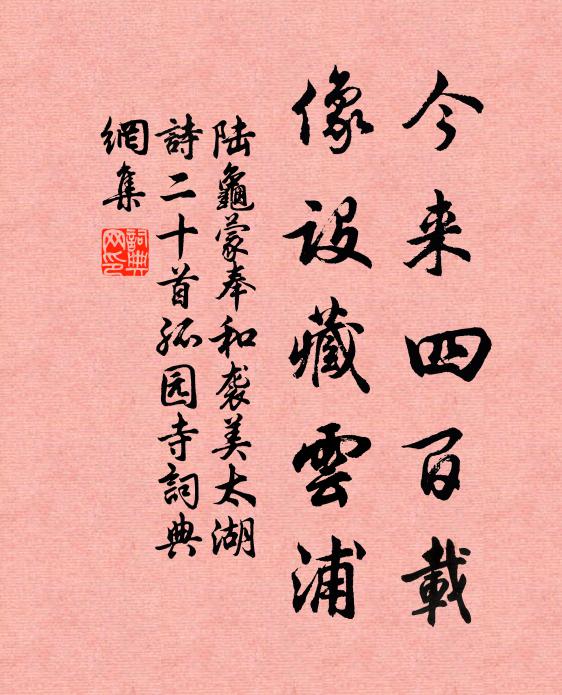 今来四百載
像設藏雲浦
陆龜蒙奉和袭美太湖
詩二十首孤园寺詞典
網集
詞典網印